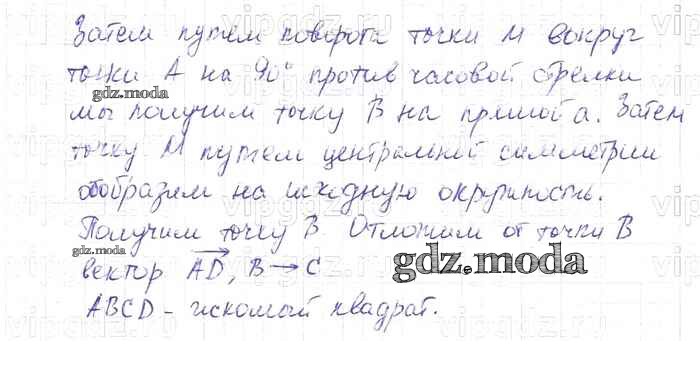 Затем путем поворота точки M вокруг
точки A на 90° против часовой стрелки
gdz.moda
мы получим точку B на прямой a. Затем
точку M путем центральной симметрии
отобразим на исходную окружность.
Получим точку B. Отложим от точки B
gdz.moda
вектор AD, B → C
gdz.moda
ABCD - искомый квадрат.